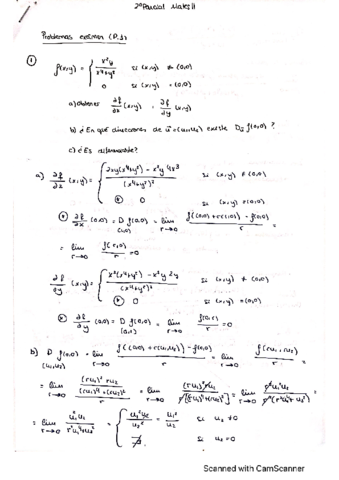 2º Parcial Mates II
Problemas examen (P.1)
1
f(x,y) = { x²y / x⁴+y² si (x,y) ≠ (0,0)
0 si (x,y) = (0,0)
a) obtener ∂f/∂x (x,y) , ∂f/∂y (x,y)
b) ¿En qué direcciones de ū = (u₁,u₂) existe Dū f(0,0)?
c) ¿Es diferenciable?
a) ∂f/∂x (x,y) = { 2xy(x⁴+y²) - x²y 4x³ / (x⁴+y²)² si (x,y) ≠ (0,0)
0 si (x,y) = (0,0)
∂f/∂x (0,0) = D f(0,0) = lim r→0 f((0,0)+r(1,0)) - f(0,0) / r =
(1,0)
= lim r→0 f(r,0) / r = 0
∂f/∂y (x,y) = { x²(x⁴+y²) - x²y 2y / (x⁴+y²)² si (x,y) ≠ (0,0)
0 si (x,y) = (0,0)
∂f/∂y (0,0) = D f(0,0) = lim r→0 f(0,r) / r = 0
(0,1)
b) D f(0,0) = lim r→0 f((0,0)+r(u₁,u₂)) - f(0,0) / r = lim r→0 f(ru₁, ru₂) / r =
(u₁,u₂)
= lim r→0 (ru₁)² ru₂ / (ru₁)⁴+(ru₂)² / r = lim r→0 (ru₁)² ru₂ / r[(ru₁)⁴+(ru₂)²] = lim r→0 r²u₁²u₂ / r²(r²u₁⁴+u₂²) =
= lim r→0 u₁²u₂ / r²u₁⁴+u₂² = { u₁²u₂ / u₂² = u₁² / u₂ si u₂ ≠ 0
∄ si u₂ = 0
Scanned with CamScanner